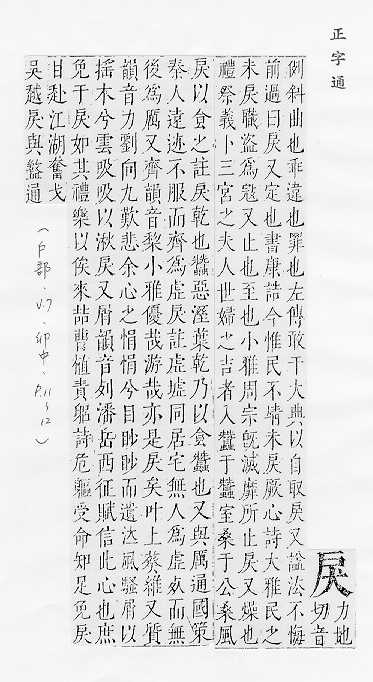 正字通
戾
力地
切音
例斜曲也乖違也罪也左傳敢干大典以自取戾又諡法不悔
前過曰戾又定也書康誥今惟民不靖未戾厥心詩大雅民之
未戾職盜為寇又止也至也小雅周宗旣滅靡所止戾又燥也
禮祭義卜三宮之夫人世婦之吉者入蠶于蠶室桑于公桑風
戾以食之註戾乾也蠶惡溼葉乾乃以食蠶也又與厲通國策
秦人遠迹不服而齊為虛戾註虛墟同居宅無人為虛死而無
後為厲又齊韻音黎小雅優哉游哉亦是戾矣叶上葵維又質
韻音力劉向九歎悲余心之悁悁兮目眇眇而遺泣風騷屑以
搖木兮雲吸吸以湫戾又屑韻音列潘岳西征賦信此心也庶
免于戾如其禮樂以俟來喆曹植責躬詩危軀受命知足免戾
甘赴江湖奮戈
吳越戾與盭通
(戶部,V.7,卯中,P.11~12)